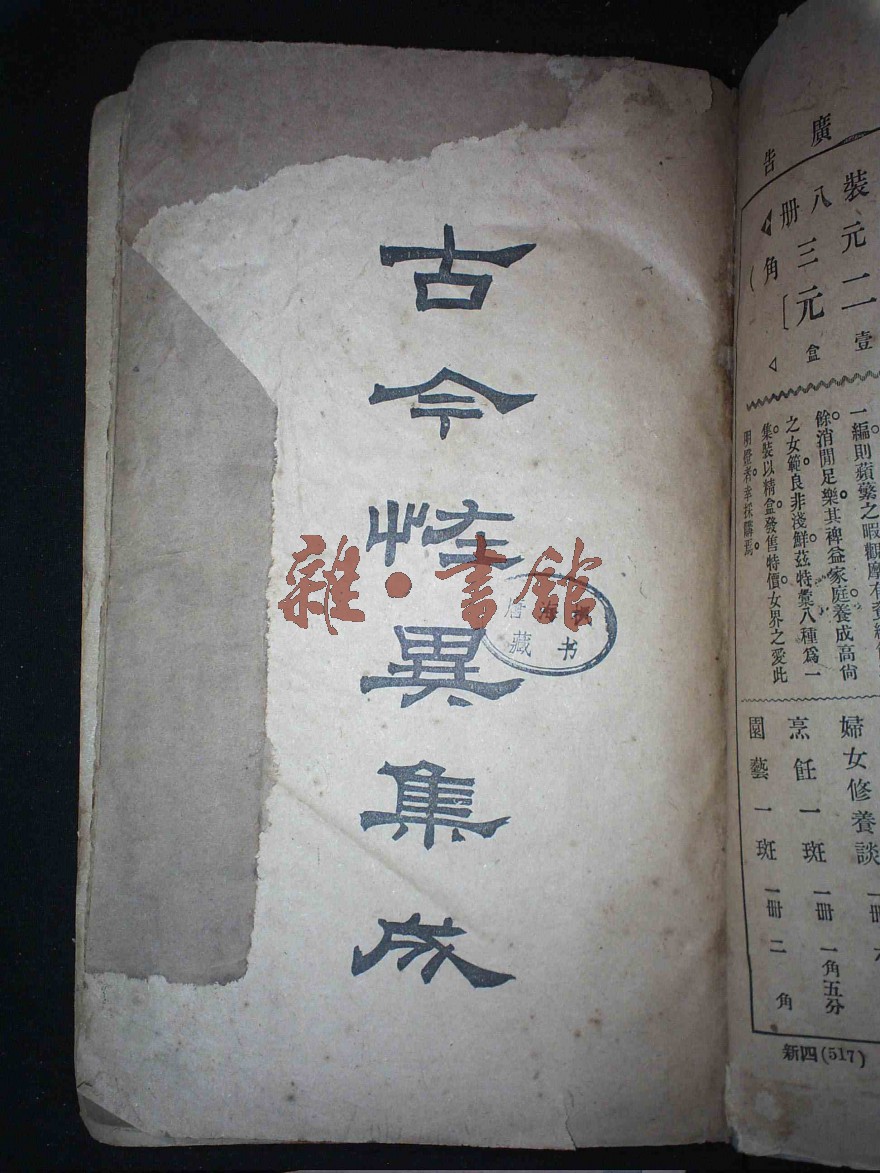 古今恠異集成
雜·書館
藏书
廣告
裝元二壹
八三元〔盒
册角
一編則蘋蘩之暇觀摩有資
餘消閒足樂其裨益家庭養成高尙
之女範良非淺鮮茲特彙八種爲一
集裝以精盒發售特價女界之愛此
明燈者幸採購焉
婦女修養談 一册
烹飪一斑 一册 一角五分
園藝一斑 一册 二角
新四(517)